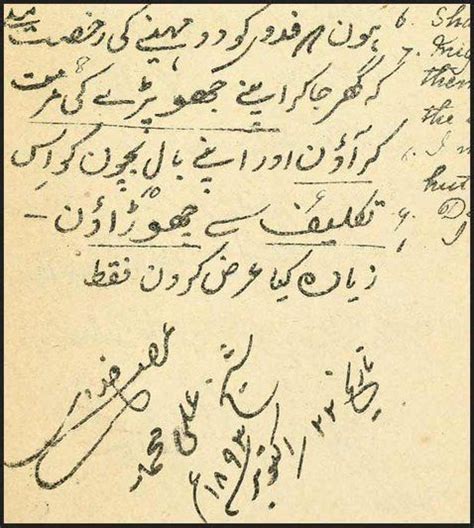 ہون فدوی کو دو مہینے کی رخصت
کہ گھر جا کر اپنے جھوپڑے کی مرمت
کر آؤن اور اپنے بال بچون کو اس
تکلیف سے چھوڑاؤن -
زیادہ کیا عرض کرون فقط
فدوی
علی محمد
تاریخ ۲۲ اکتوبر ۱۸۹۳ع
6.
7.
them
the
hut
9.